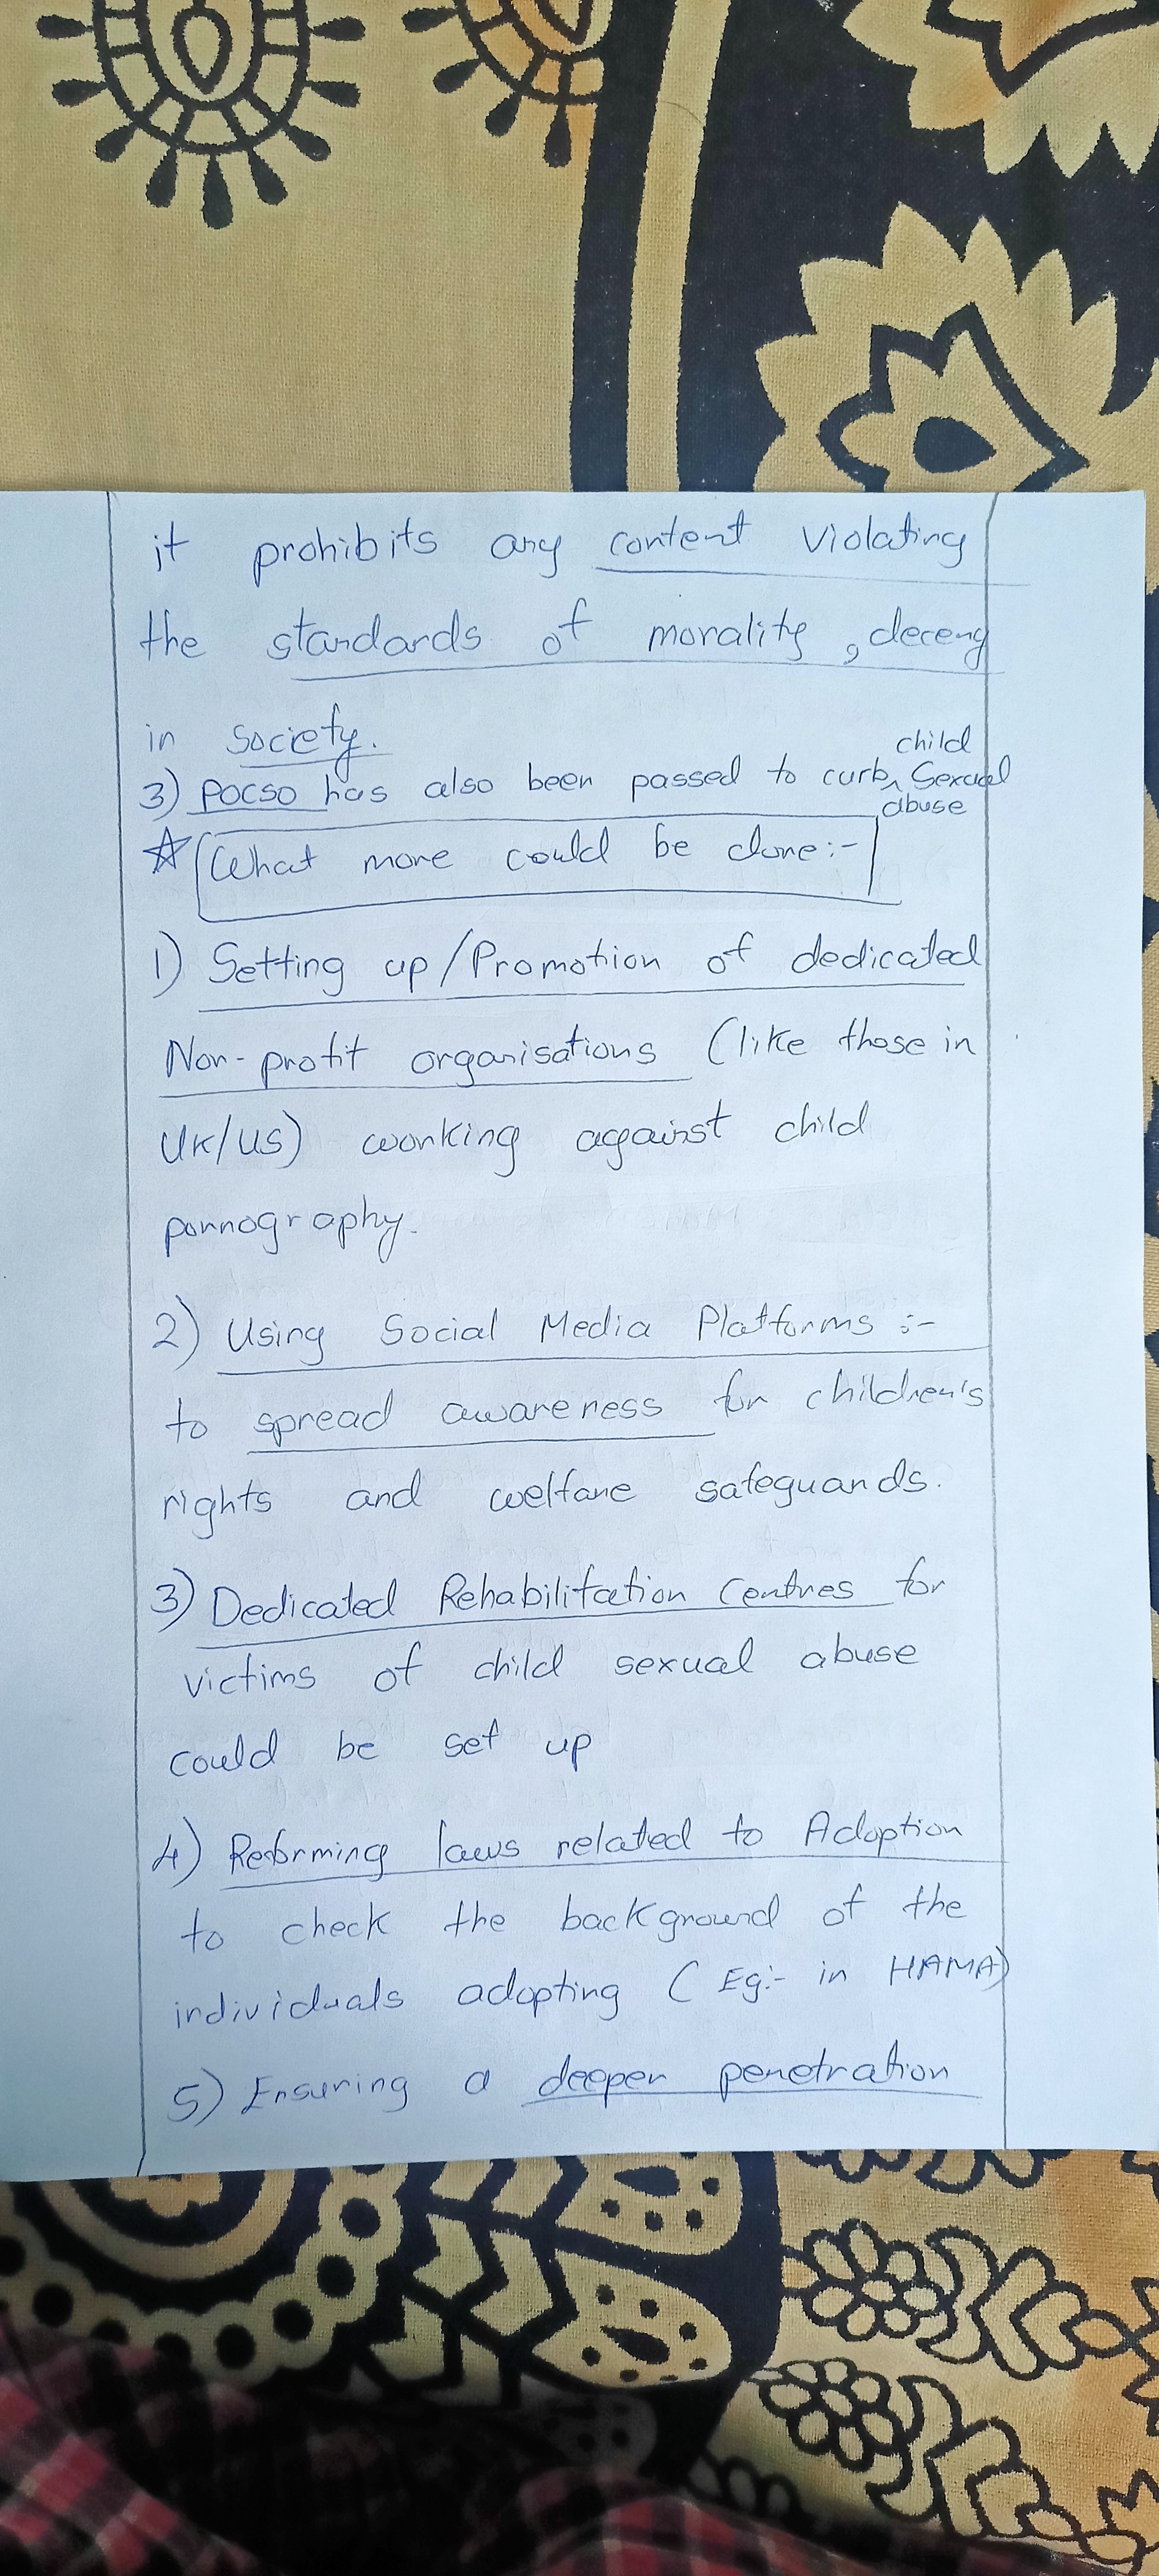 it prohibits any content violating
the standards of morality, decency
in society.
3) POCSO has also been passed to curb child sexual abuse
☆ What more could be done:-
1) Setting up/Promotion of dedicated
Non-profit organisations (like those in
UK/US) working against child
pornography.
2) Using Social Media Platforms :-
to spread awareness for children's
rights and welfare safeguards.
3) Dedicated Rehabilitation Centres for
victims of child sexual abuse
could be set up
4) Reforming laws related to Adoption
to check the background of the
individuals adopting (Eg:- in HAMA)
5) Ensuring a deeper penetration